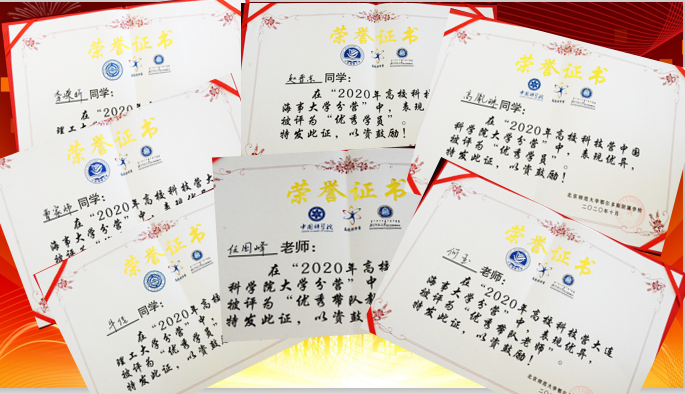 荣誉证书
同学：
在“2020年
理工大学分
荣誉证书
同学：
在“2020年高校科
海事大学分营”中，表现
被评为“优秀学员”。
特发此证，以资鼓励！
荣誉证书
中国科学院
同学：
在“2020年高校科技营中国
科学院大学分营”中，表现优异，
被评为“优秀学员”。
特发此证，以资鼓励！
二〇二〇年十月
荣誉证书
同学：
在“2020年高校科技营大
海事大学分营”中，
被评为
荣誉证书
中国科学院
任国峰 老师：
在“2020年高校
科学院大学分营”中
被评为“优秀带队教
特发此证，以资鼓励
荣誉证书
牛
同学：
在“2020年高校
理工大学分营”
被评为“优秀学员”
特发此证，以资
荣誉证书
何
老师：
在“2020年高校科技营大连
海事大学分营”中，表现优异，
被评为“优秀带队老师”。
特发此证，以资鼓励！